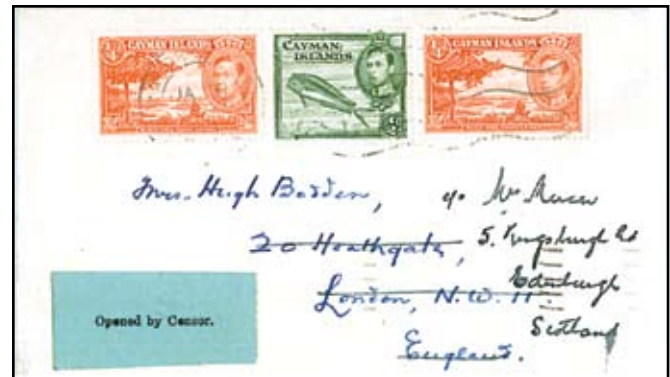 CAYMAN ISLANDS
CAYMAN
ISLANDS
CAYMAN ISLANDS
JA
Mrs. Hugh Bodden,
c/o Mrs
20 Heathgate,
5, Rd
London, N.W. 11.
Edinburgh
England.
Scotland
Opened by Censor.